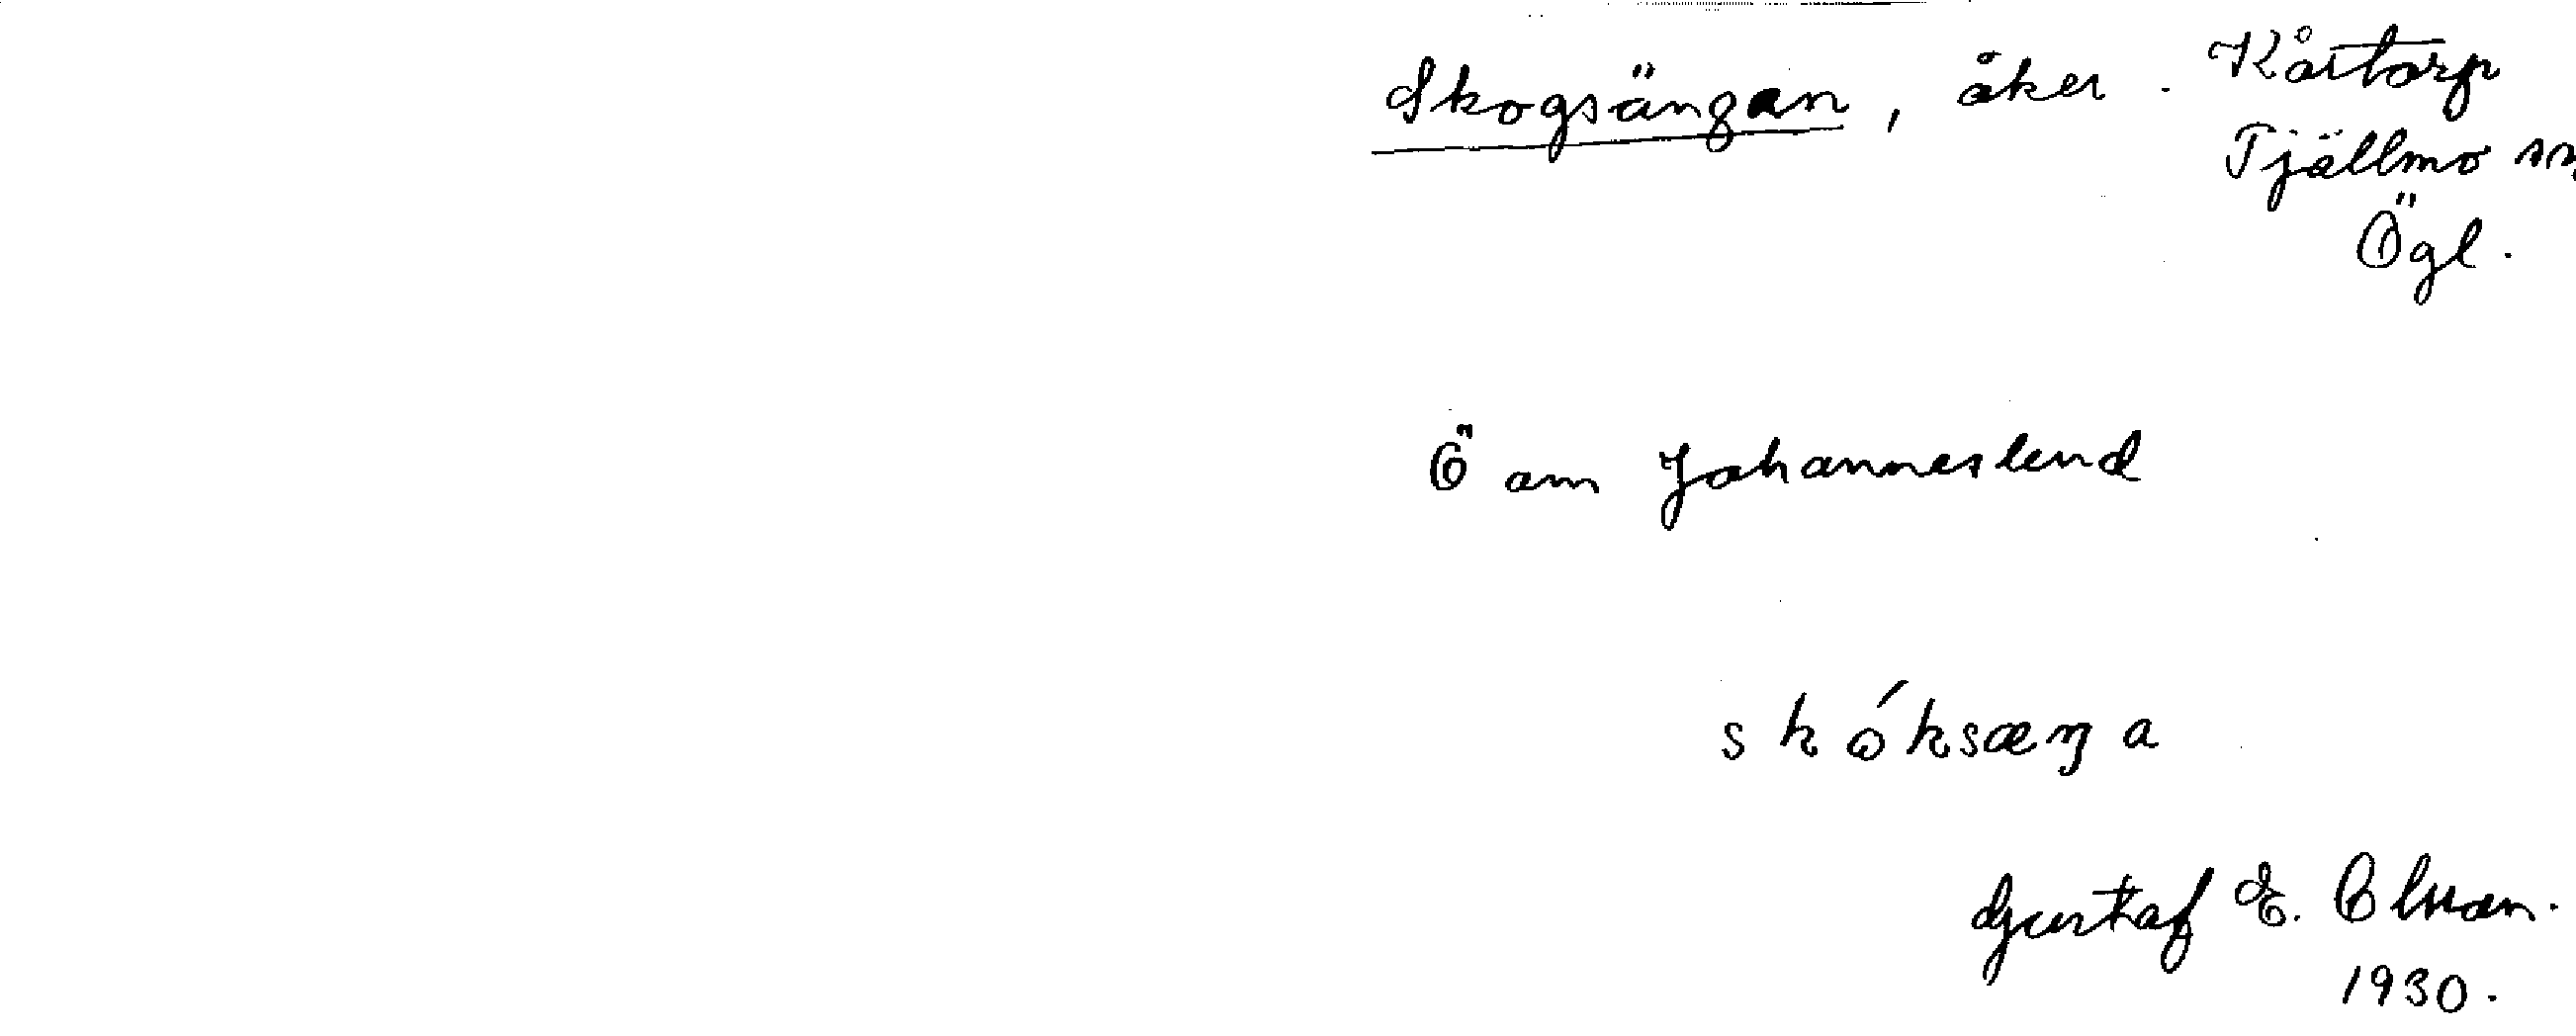 Skogsängan, åker. Kårtorp
Tjällmo sn
Ögl.
Ö om Johanneslund
skóksæŋa
Gustaf E. Olsson.
1930.